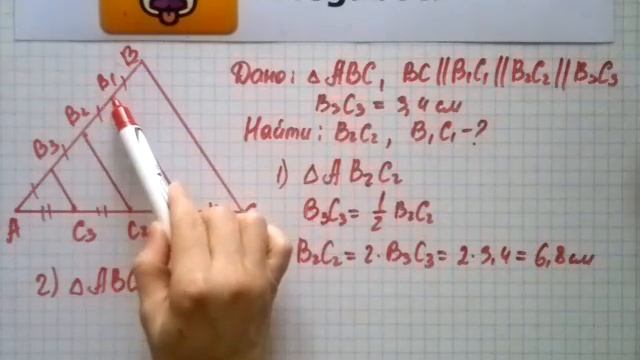 Дано: △ABC, BC || B1C1 || B2C2 || B3C3
B3C3 = 3,4 см
Найти: B2C2, B1C1 - ?
1) △AB2C2
B3C3 = 1/2 B2C2
B2C2 = 2 · B3C3 = 2 · 3,4 = 6,8 см
2) △ABC
B
B1
B2
B3
A
C3
C2